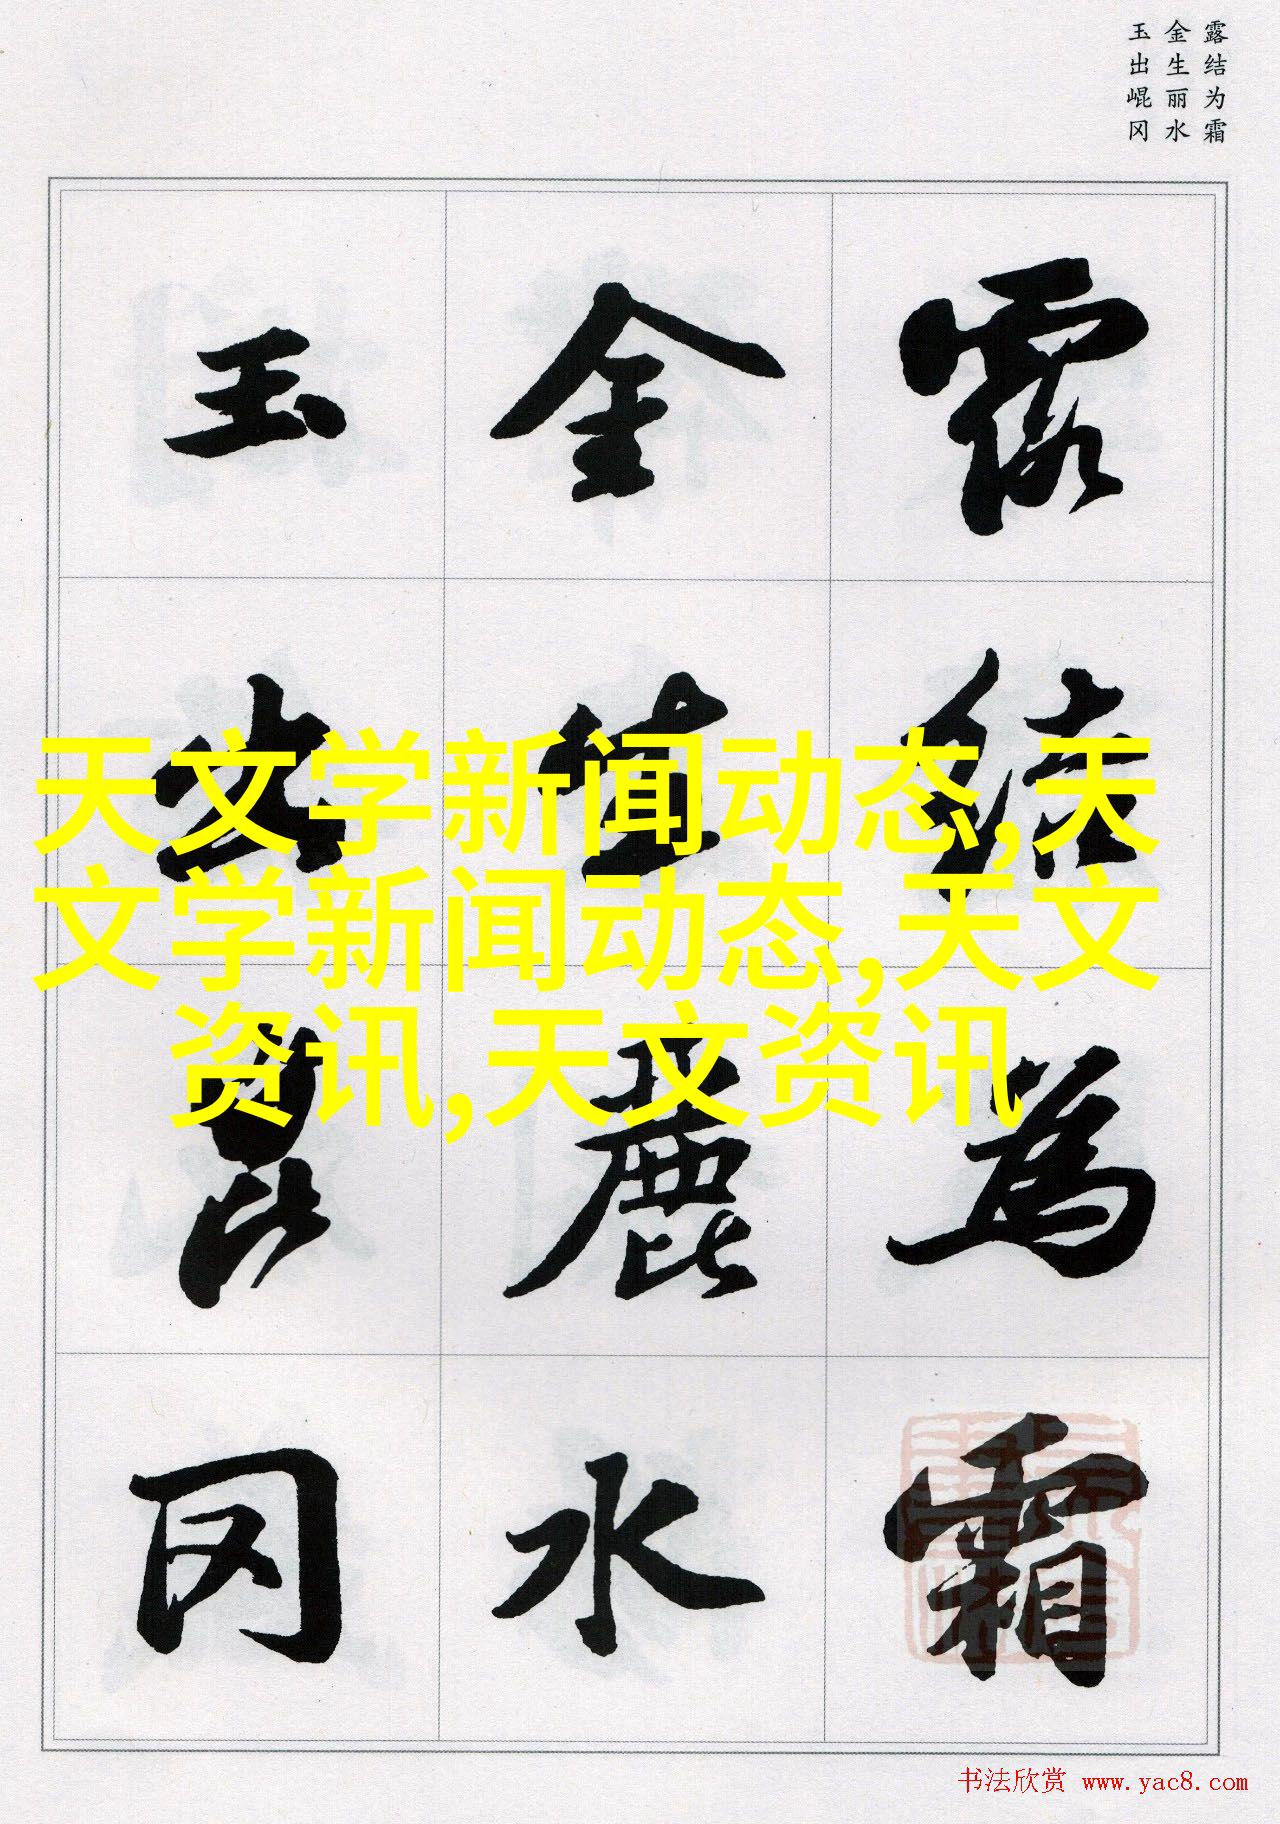 露结为霜
金生丽水
玉出崐冈
露結為霜
金生麗水
玉出崑冈
天文学新闻动态,天
文学新闻动态,天文
资讯,天文资讯
书法欣赏 www.yac8.com